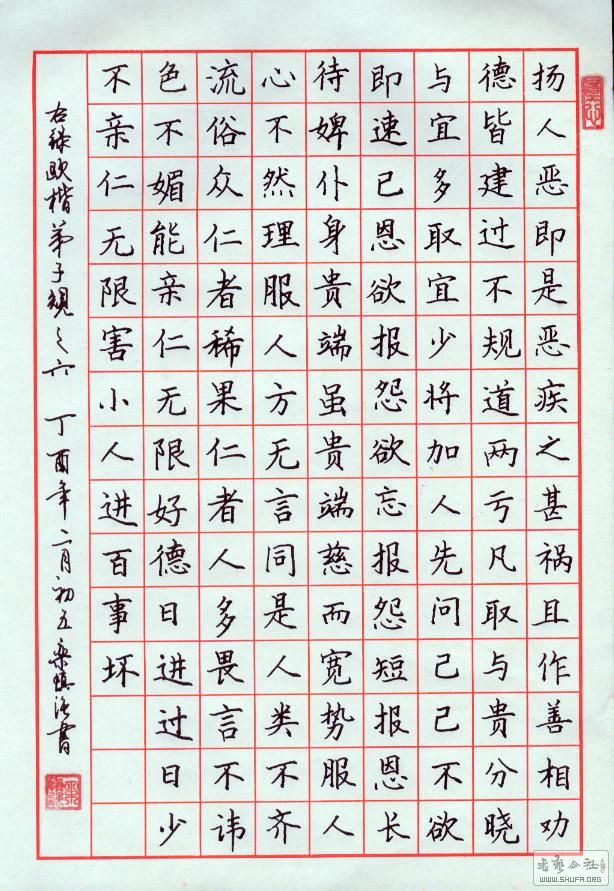 扬人恶即是恶疾之甚祸且作善相劝
德皆建过不规道两亏凡取与贵分晓
与宜多取宜少将加人先问己己不欲
即速已恩欲报怨欲忘报怨短报恩长
待婢仆身贵端虽贵端慈而宽势服人
心不然理服人方无言同是人类不齐
流俗众仁者稀果仁者人多畏言不讳
色不媚能亲仁无限好德日进过日少
不亲仁无限害小人进百事坏
右录欧楷弟子规之六 丁酉年二月初五 书
书艺公社
WWW.SHUFA.ORG